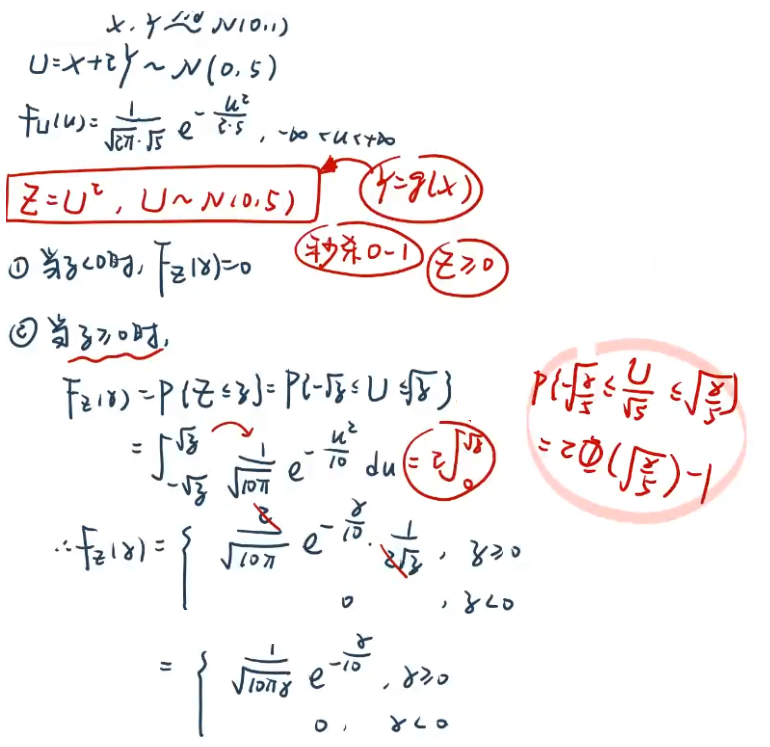 X, Y iid~ N(0,1)
U=X+2Y ~ N(0,5)
f_U(u)= 1/(√2π·√5) e^{-u²/(2·5)}, -∞<u<+∞
Z=U², U~N(0,5)
Y=g(X)
秒杀0-1
Z≥0
① 当z<0时, F_Z(z)=0
② 当z≥0时,
F_Z(z)=P{Z≤z}=P{-√z≤U≤√z}
=∫_{-√z}^{√z} 1/√(10π) e^{-u²/10} du =2∫_0^{√z}
P{-√(z/5)≤U/√5≤√(z/5)}
=2Φ(√(z/5))-1
∴f_Z(z)={ 2/√(10π) e^{-z/10}·1/(2√z), z≥0
0, z<0
={ 1/√(10πz) e^{-z/10}, z≥0
0, z<0